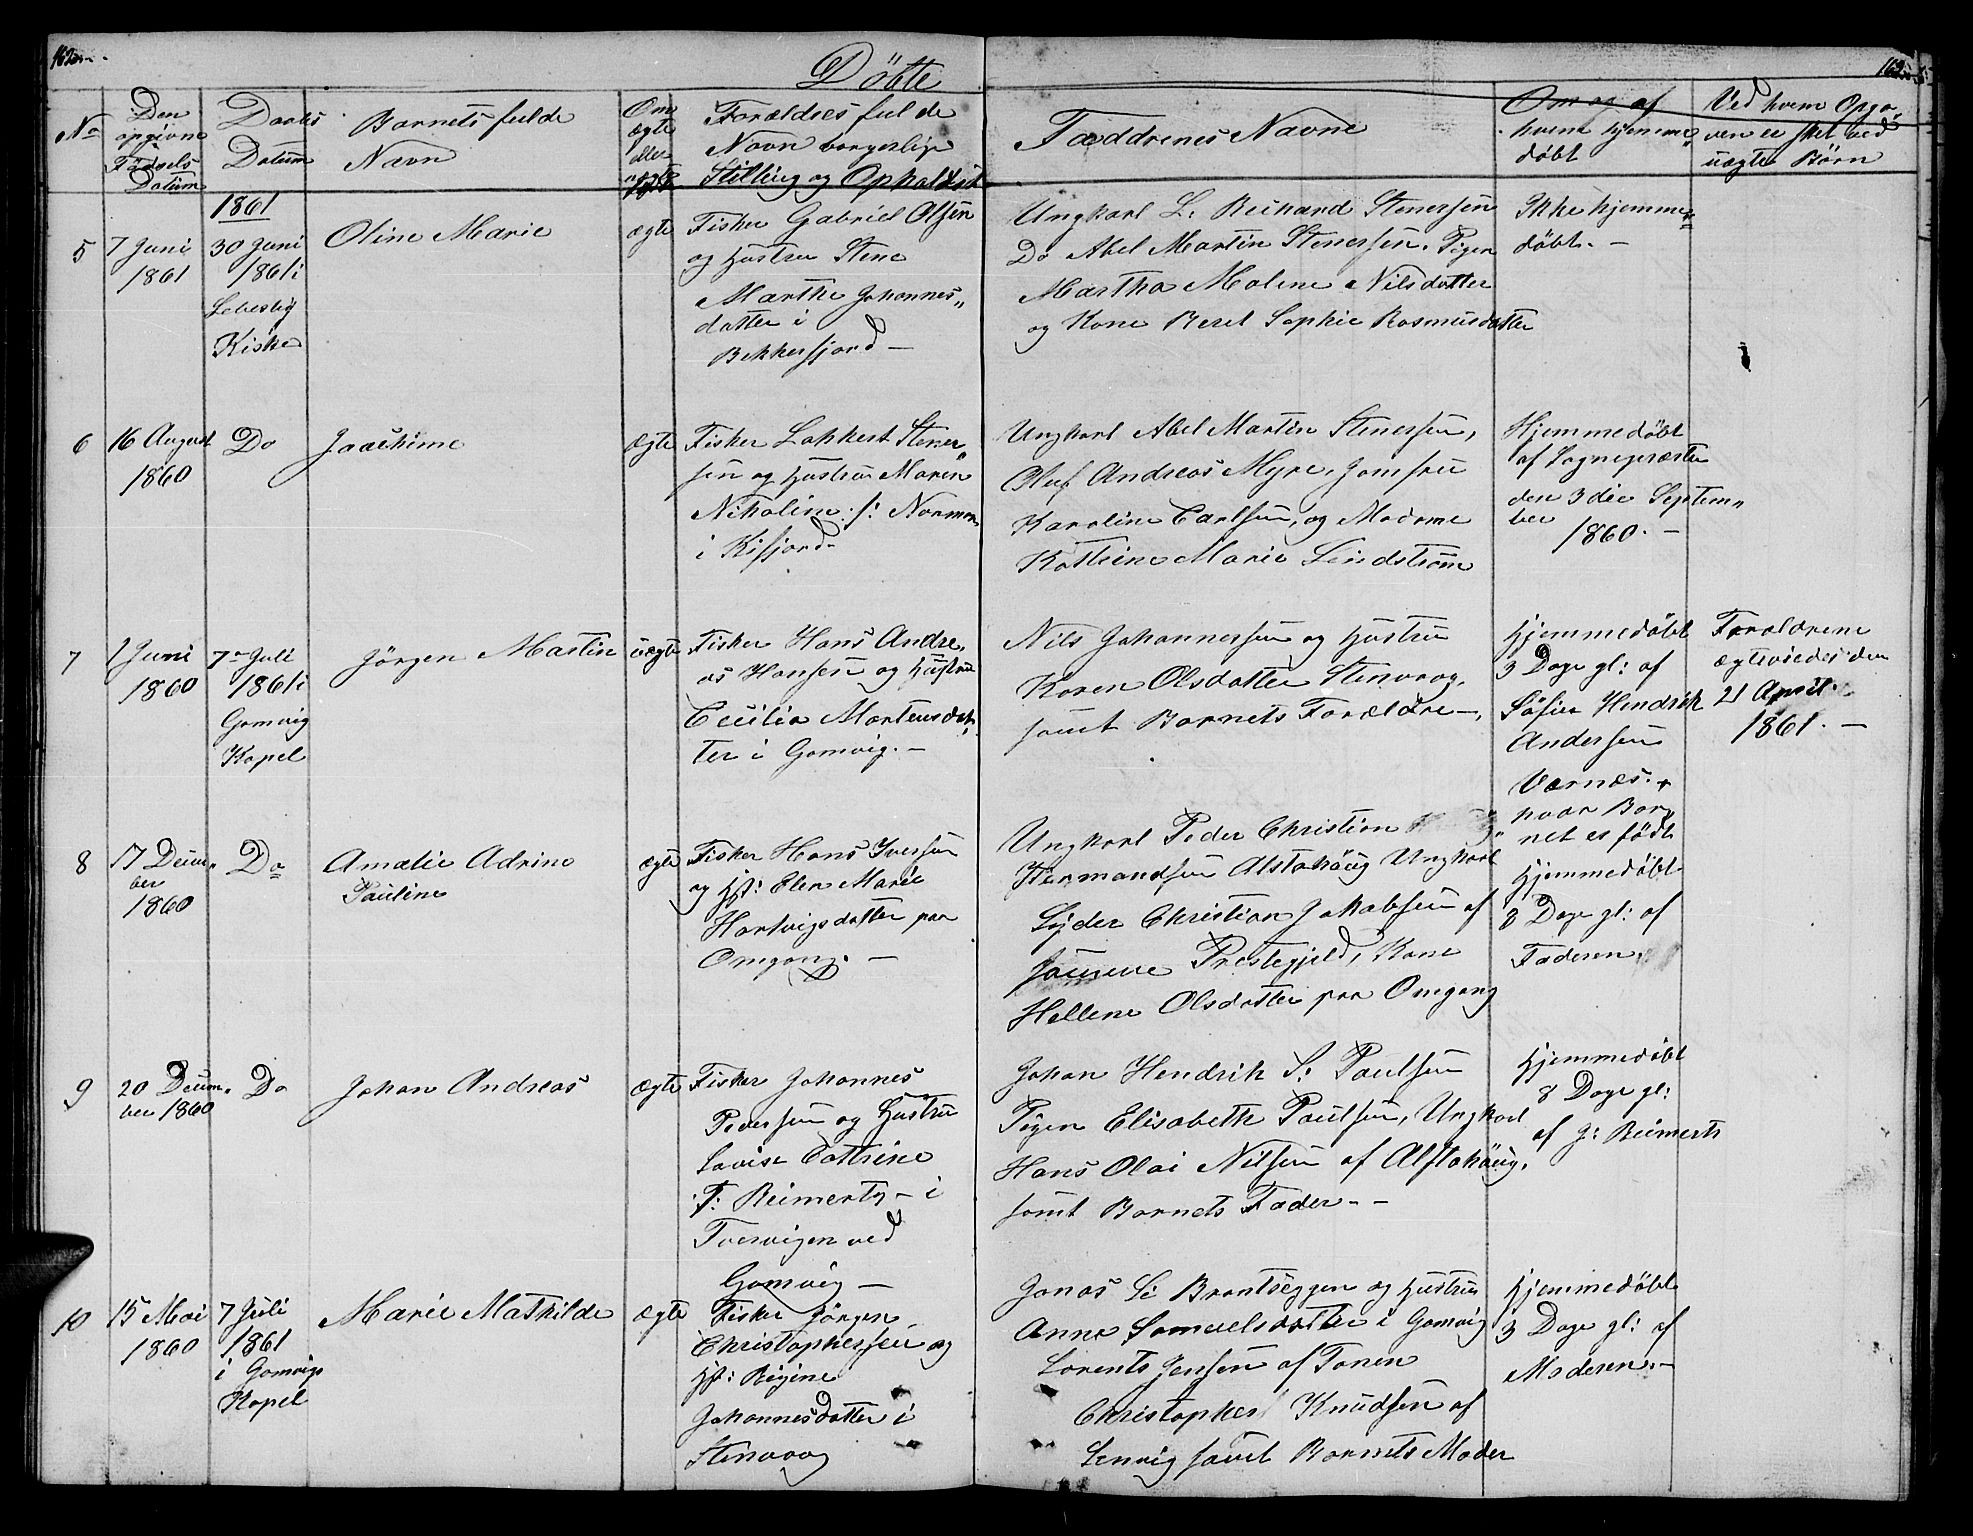 Døbte
No
Den
opgivne
Fødsels
Datum
Daabs
Datum
Barnets fulde
Navn
Om
ægte
eller
uægte
Forældres fulde
Navn borgerlige
Stilling og Opholdst
Fadderenes Navne
Om og af
hvem hjemme
døbt
Ved hvem Opga-
ven er sket ved
uægte Børn
1861
5
7 Juni
1861
30 Juni
1861 i
Lebesby
Kirke
Oline Marie
ægte
Fisker Gabriel Olsen
og Hustru Stene
Marthe Johannes-
datter i
Bekkerfjord –
Ungkarl L. Reichard Stenersen
Do Abel Martin Stenersen. Pigen
Martha Malene Nilsdatter
og Kone Berel Sophie Rasmusdatter
Ikke hjemme=
døbt. –
6
16 August
1860
Do
Joachime
ægte
Fisker Lakkert Stener
sen og Hustru Maren
Nikoline f: Norman
i Kifjord –
Ungkarl Abel Martin Stenersen,
Oluf Andreas Myre, Jomfru
Karoline Carlsen, og Madame
Kattrine Marie Lindstrøm
Hjemmedøbt
af Sognepræsten
den 3die Septem-
ber
1860. –
7
1 Juni
1860
7de Juli
1861 i
Gamvig
Kapel
Jørgen Martin
uægte
Fisker Hans Andre-
as Hansen og Hustru
Cecilia Mortensdat-
ter i Gamvig. –
Nils Johannessen og Hustru
Karen Olsdatter Stenvaag,
samt Barnets Forældre –,
Hjemmedøbt
3 Dage gl: af
Søfin Hendrik
Andersen
Varnæs. +
hvor Bar-
net er født
Foraldrene
ægteviedes den
21 April.
1861. –
8
17 Decem-
ber
1860
Do
Amalie Adrine
Pauline
ægte
Fisker Hans Iversen
og Hst: Elen Marie
Hartvigsdatter paa
Omgang. –
Ungkarl Peder Christian
Hermandsen Alstahaug Ungkarl
Lyder Christian Jakobsen af
samme Prestegjeld, Kone
Hellene Olsdatter paa Omgang
Hjemmedøbt
8 Dage gl: af
Faderen.
9
20 Decem-
ber 1860
Do
Johan Andreas
ægte
Fisker Johannes
Pedersen og Hustru
Lovise Cattrine
f: Reimerts – i
Tvervigen ved
Gamvig –
Johan Hendrik S: Paulsen
Pigen Elisabeth Paulsen, Ungkarl
Hans Olai Nilsen af Alstahaug,
samt Barnets Fader – –
Hjemmedøbt
8 Dage gl:
af J: Reimerts
10
15 Mai
1860
7 Juli
1861
i Gamvigs
Kapel
Marie Mathilde
ægte
Fisker Jørgen
Christophersen og
Hst: Regine
Johannesdatter i
Stenvaag
Jonas L: Brantseggen og Hustru
Anne Samuelsdatter i Gamvig
Lorents Jensen af Tanen
Christopher Knudsen af
Lenvig samt Barnets Moder
Hjemmedøbt
3 Dage gl: af
Moderen. –